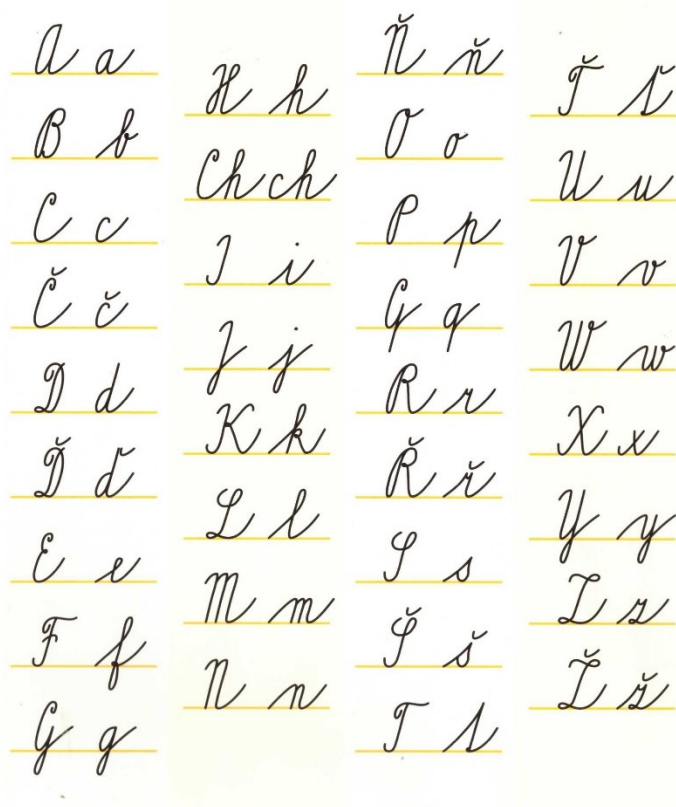 A a
B b
C c
Č č
D d
Ď ď
E e
F f
G g
H h
Ch ch
I i
J j
K k
L l
M m
N n
Ň ň
O o
P p
Q q
R r
Ř ř
S s
Š š
T t
Ť ť
U u
V v
W w
X x
Y y
Z z
Ž ž